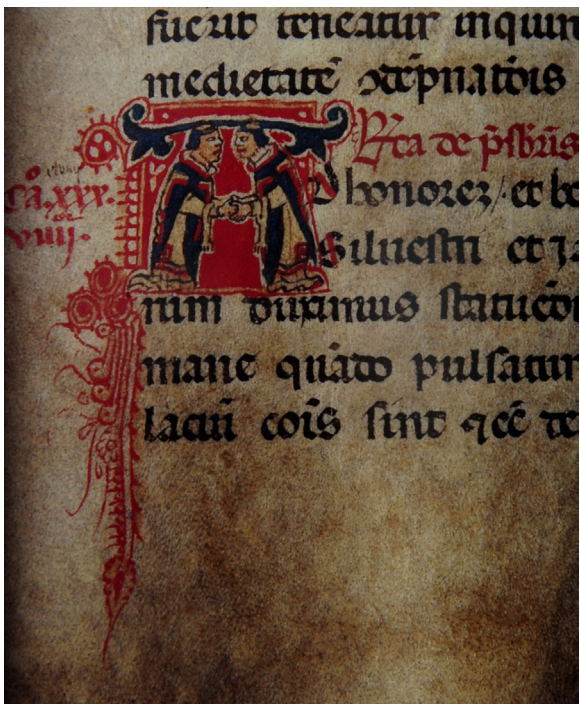 fuerit teneatur inquir
medietatē ɔdēpnatōis
Rca de pſbris
cā.xxx.
viiij.
AD honorez / et be
Silueſtri et
num duximus ſtatuēd
mane quādo pulſatur
laciū cōis ſint ⁊ cē te